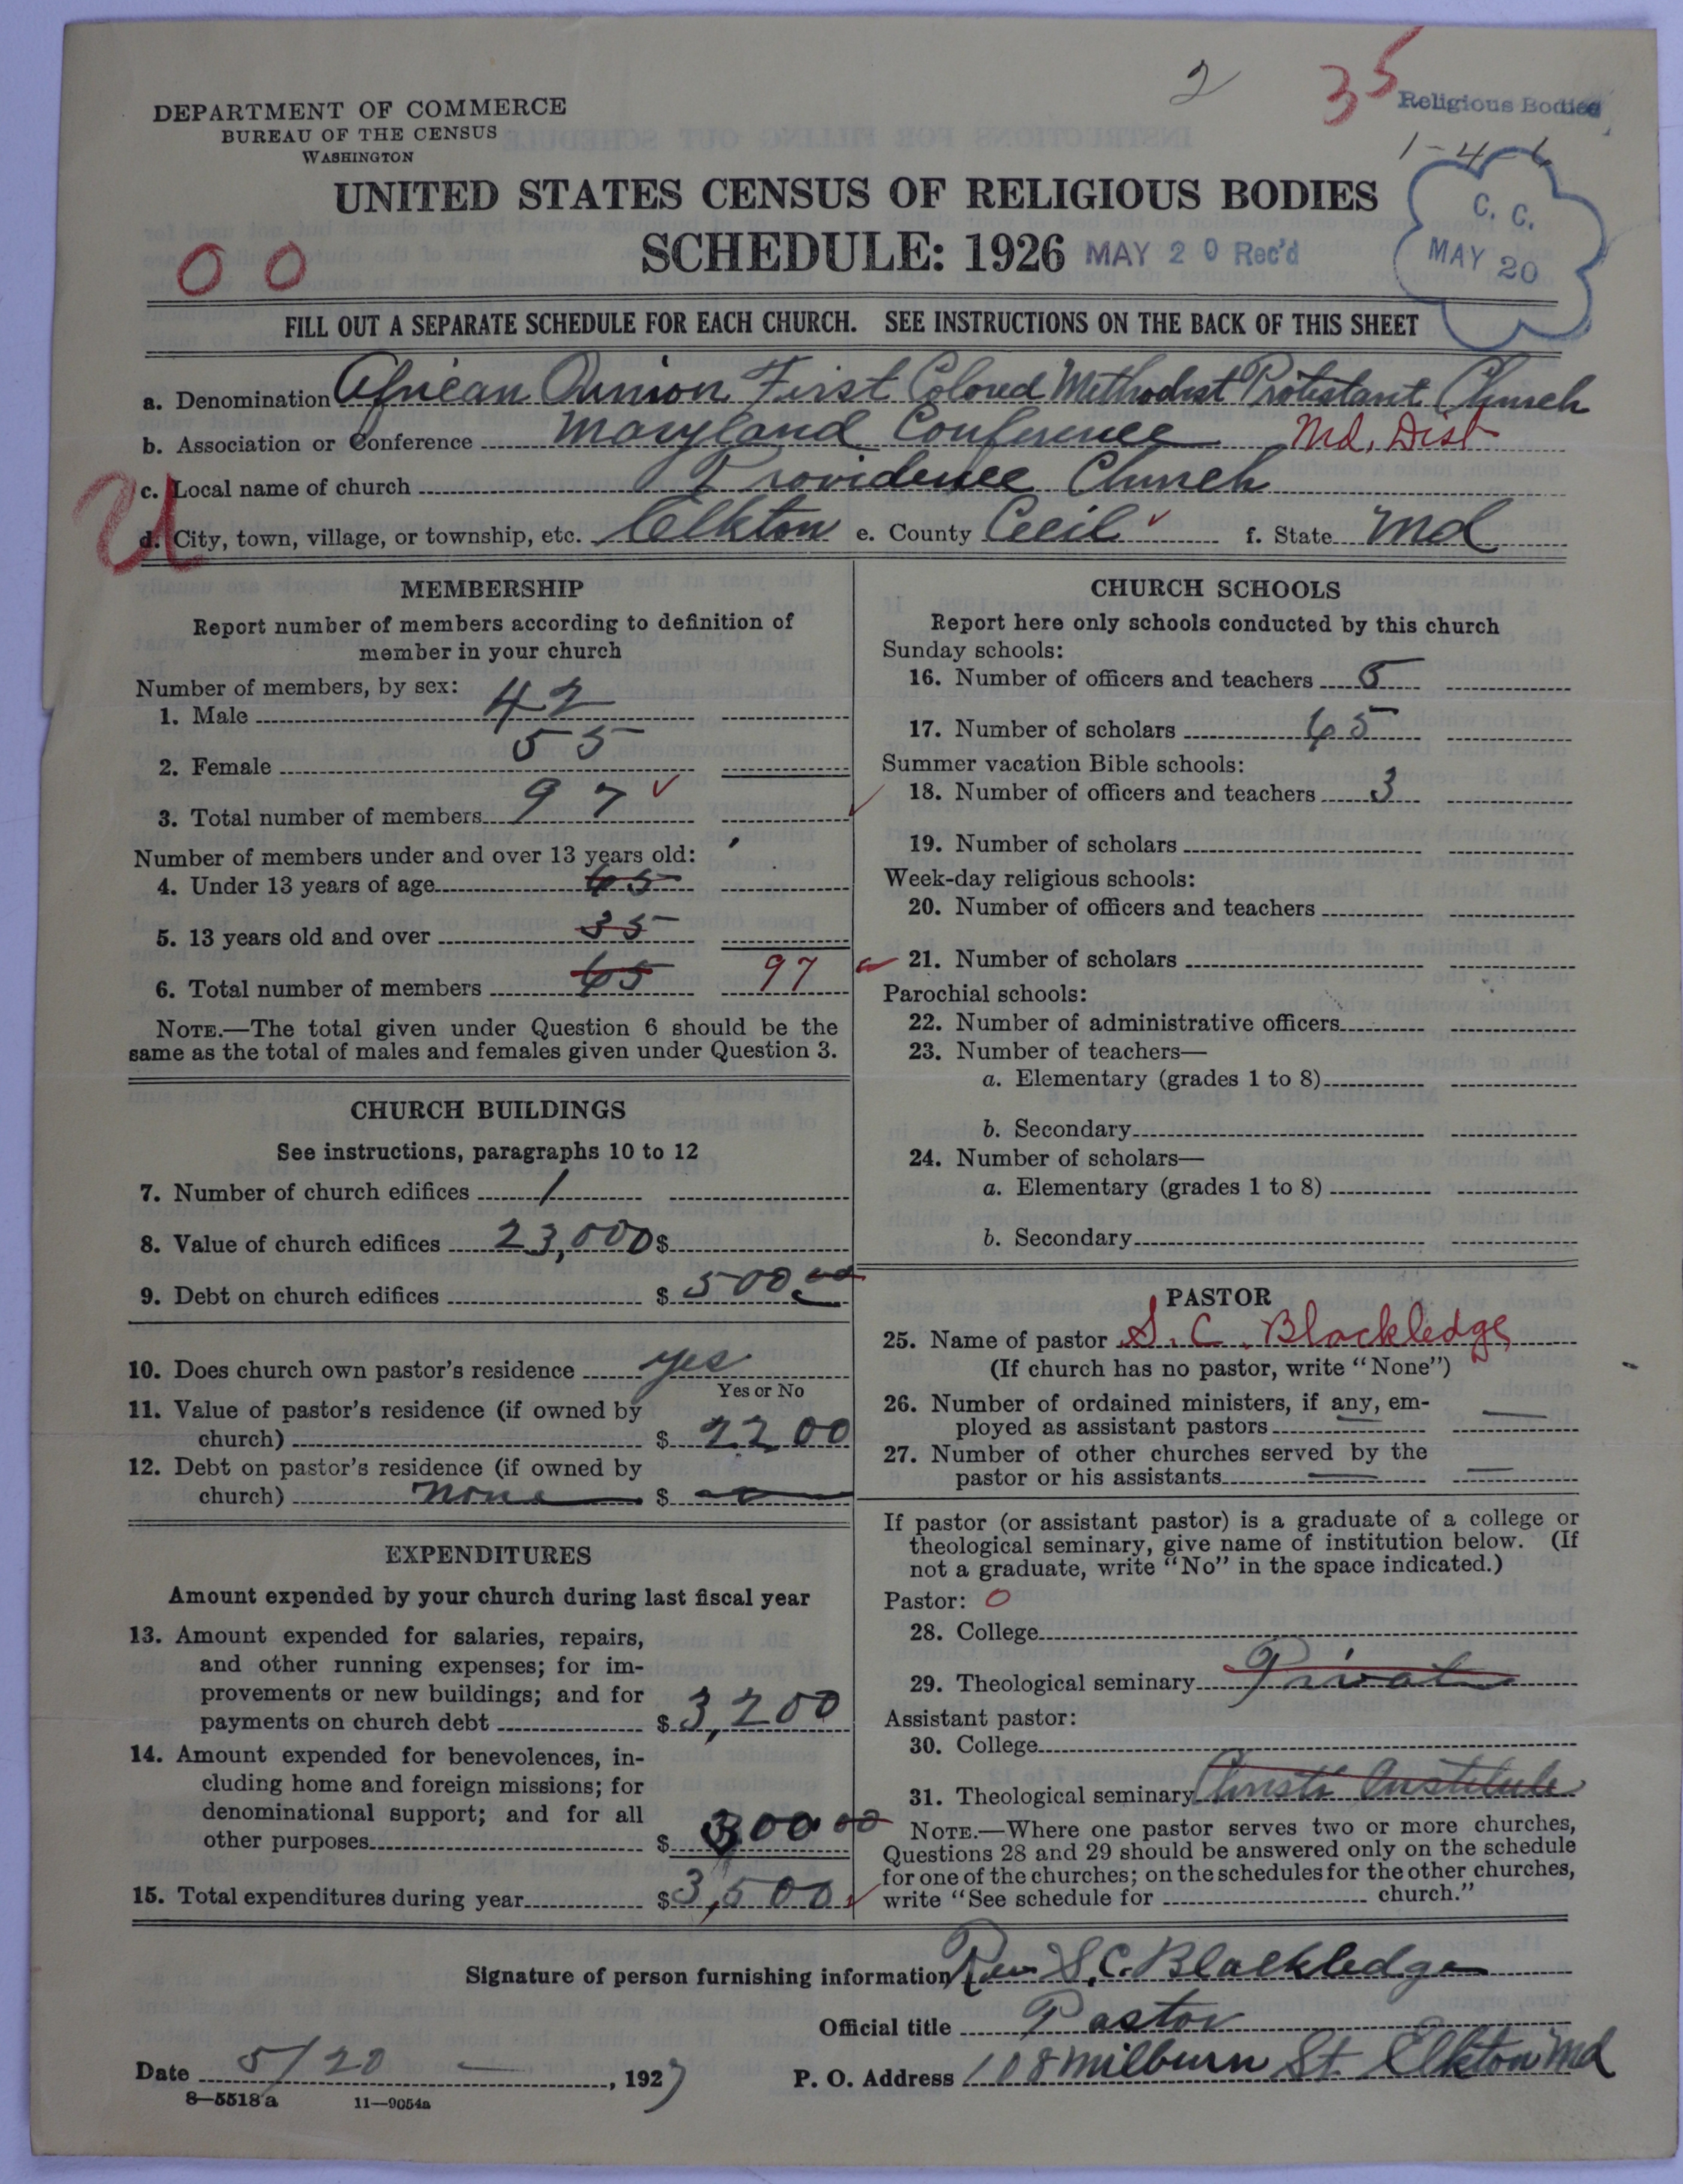 2
35
Religious Bodies
1-4-6
DEPARTMENT OF COMMERCE
BUREAU OF THE CENSUS
WASHINGTON
UNITED STATES CENSUS OF RELIGIOUS BODIES
SCHEDULE: 1926 MAY 20 Rec'd
C. C.
MAY 20
00
FILL OUT A SEPARATE SCHEDULE FOR EACH CHURCH. SEE INSTRUCTIONS ON THE BACK OF THIS SHEET
a. Denomination African Union First Colored Methodist Protestant Church
b. Association or Conference Maryland Conference Md, Dist
c. Local name of church Providence Church
U
d. City, town, village, or township, etc. Elkton e. County Cecil f. State Md
MEMBERSHIP
Report number of members according to definition of
member in your church
Number of members, by sex:
1. Male 42
2. Female 55
3. Total number of members 97
Number of members under and over 13 years old:
4. Under 13 years of age 65
5. 13 years old and over 35
6. Total number of members 65 97
NOTE.—The total given under Question 6 should be the
same as the total of males and females given under Question 3.
CHURCH BUILDINGS
See instructions, paragraphs 10 to 12
7. Number of church edifices 1
8. Value of church edifices 23,000 $
9. Debt on church edifices $ 500 00
10. Does church own pastor's residence yes
Yes or No
11. Value of pastor's residence (if owned by
church) $ 2200
12. Debt on pastor's residence (if owned by
church) none $
EXPENDITURES
Amount expended by your church during last fiscal year
13. Amount expended for salaries, repairs,
and other running expenses; for im-
provements or new buildings; and for
payments on church debt $ 3,200
14. Amount expended for benevolences, in-
cluding home and foreign missions; for
denominational support; and for all
other purposes $ 300 00
15. Total expenditures during year $ 3,500
CHURCH SCHOOLS
Report here only schools conducted by this church
Sunday schools:
16. Number of officers and teachers 5
17. Number of scholars 65
Summer vacation Bible schools:
18. Number of officers and teachers 3
19. Number of scholars
Week-day religious schools:
20. Number of officers and teachers
21. Number of scholars
Parochial schools:
22. Number of administrative officers
23. Number of teachers—
a. Elementary (grades 1 to 8)
b. Secondary
24. Number of scholars—
a. Elementary (grades 1 to 8)
b. Secondary
PASTOR
25. Name of pastor S. C. Blackledge
(If church has no pastor, write "None")
26. Number of ordained ministers, if any, em-
ployed as assistant pastors —
27. Number of other churches served by the
pastor or his assistants —
If pastor (or assistant pastor) is a graduate of a college or
theological seminary, give name of institution below. (If
not a graduate, write "No" in the space indicated.)
Pastor: 0
28. College
29. Theological seminary Private
Assistant pastor:
30. College
31. Theological seminary Institute
NOTE.—Where one pastor serves two or more churches,
Questions 28 and 29 should be answered only on the schedule
for one of the churches; on the schedules for the other churches,
write "See schedule for church."
Signature of person furnishing information Rev S. C. Blackledge
Official title Pastor
Date 5/20 , 1927 P. O. Address 108 Milburn St. Elkton Md
8—5518 a 11—9054a